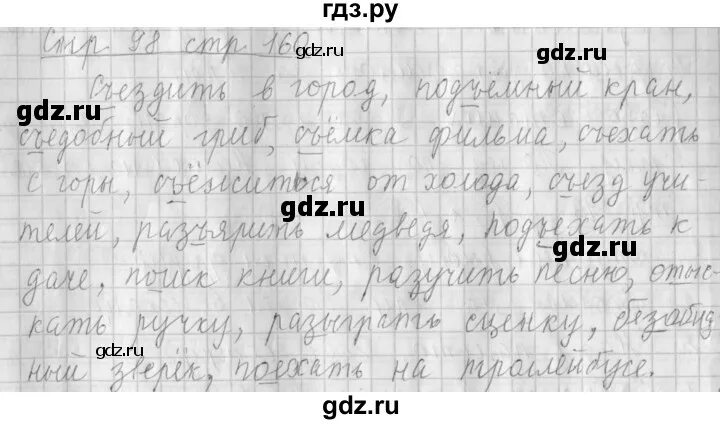 гдз.ру
Стр 98 стр 160
gdz.ru
Съездить в город, подъёмный кран,
gdz.ru gdz.ru
съедобный гриб, съёмка фильма, съехать
с горы, съёжиться от холода, съезд учи-
gdz.ru
телей, разъярить медведя, подъехать к
gdz.ru
даче, поиск книги, разучить песню, отыс-
кать ручку, разыграть сценку, безобид
gdz.ru gdz.ru
ный зверёк, поехать на троллейбусе.
gdz.ru